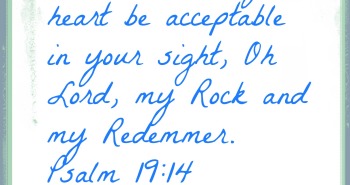 heart be acceptable
in your sight, Oh
Lord, my Rock and
my Redemmer.
Psalm 19:14